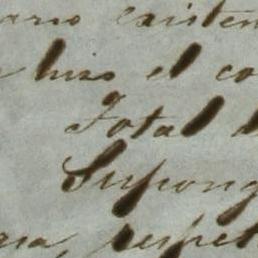 ario existen
hizo el co
Total d
Supong
ra, respet